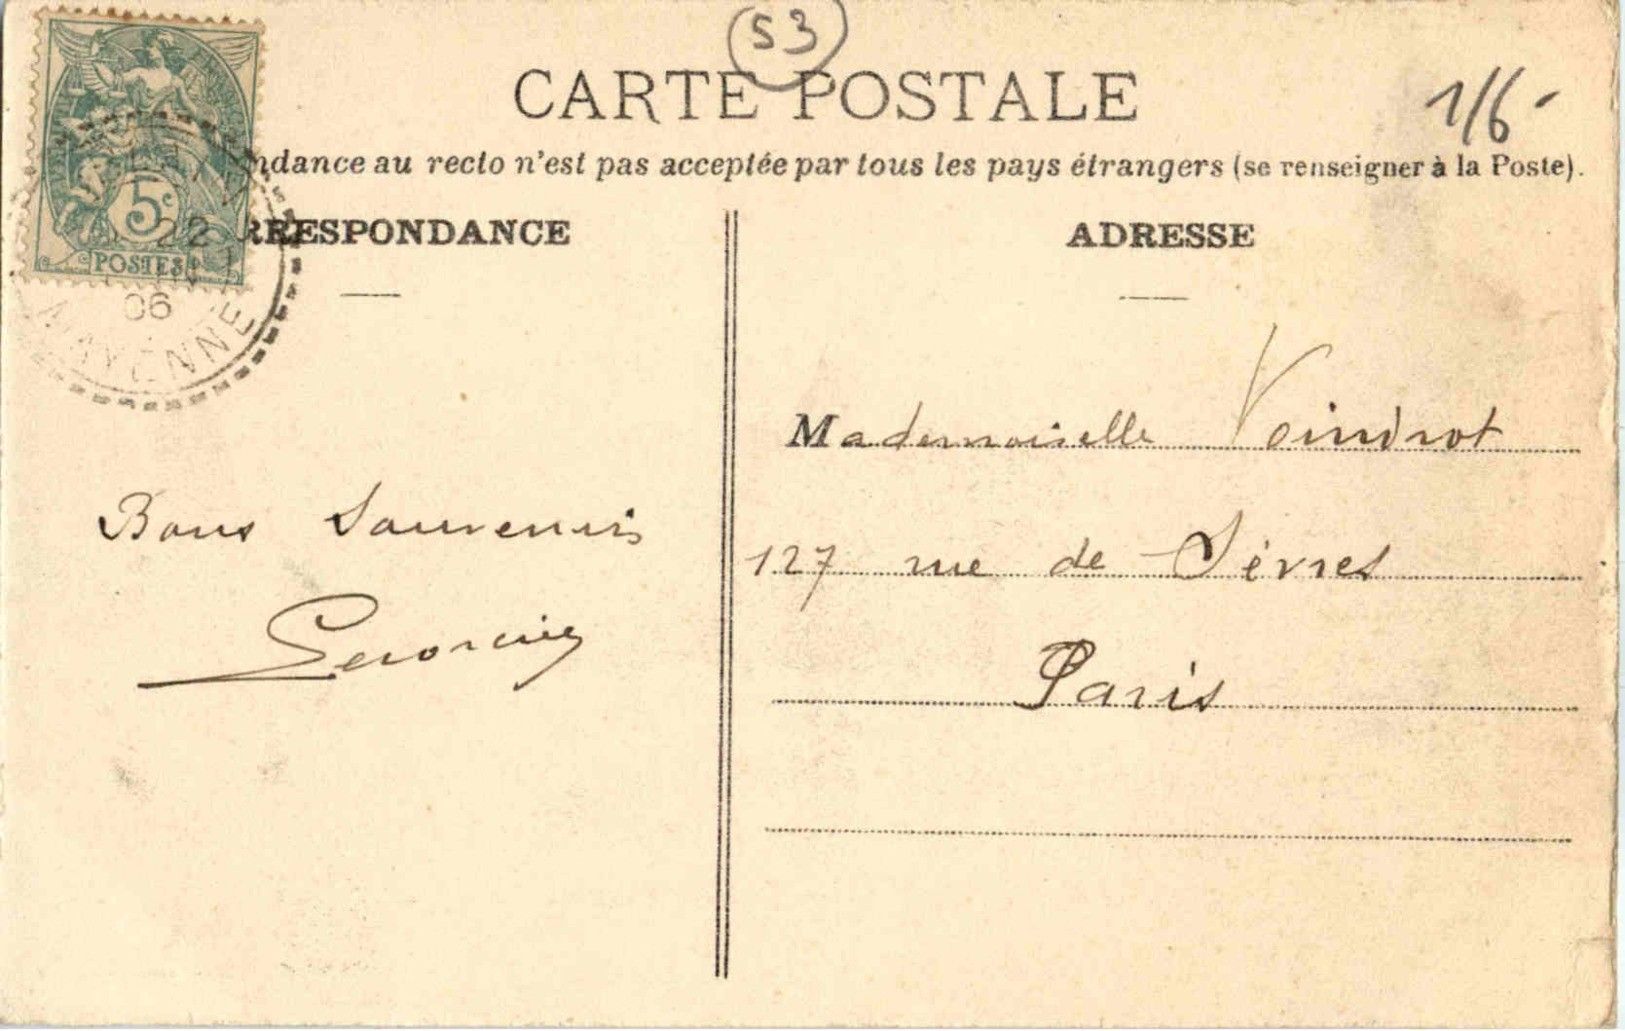 53
CARTE POSTALE
1/6-
ndance au recto n'est pas acceptée par tous les pays étrangers (se renseigner à la Poste).
RRESPONDANCE
ADRESSE
5c
22
POSTES
06
MAYENNE
Mademoiselle Voindrot
127 rue de Sèvres
Paris
Bons Souvenirs